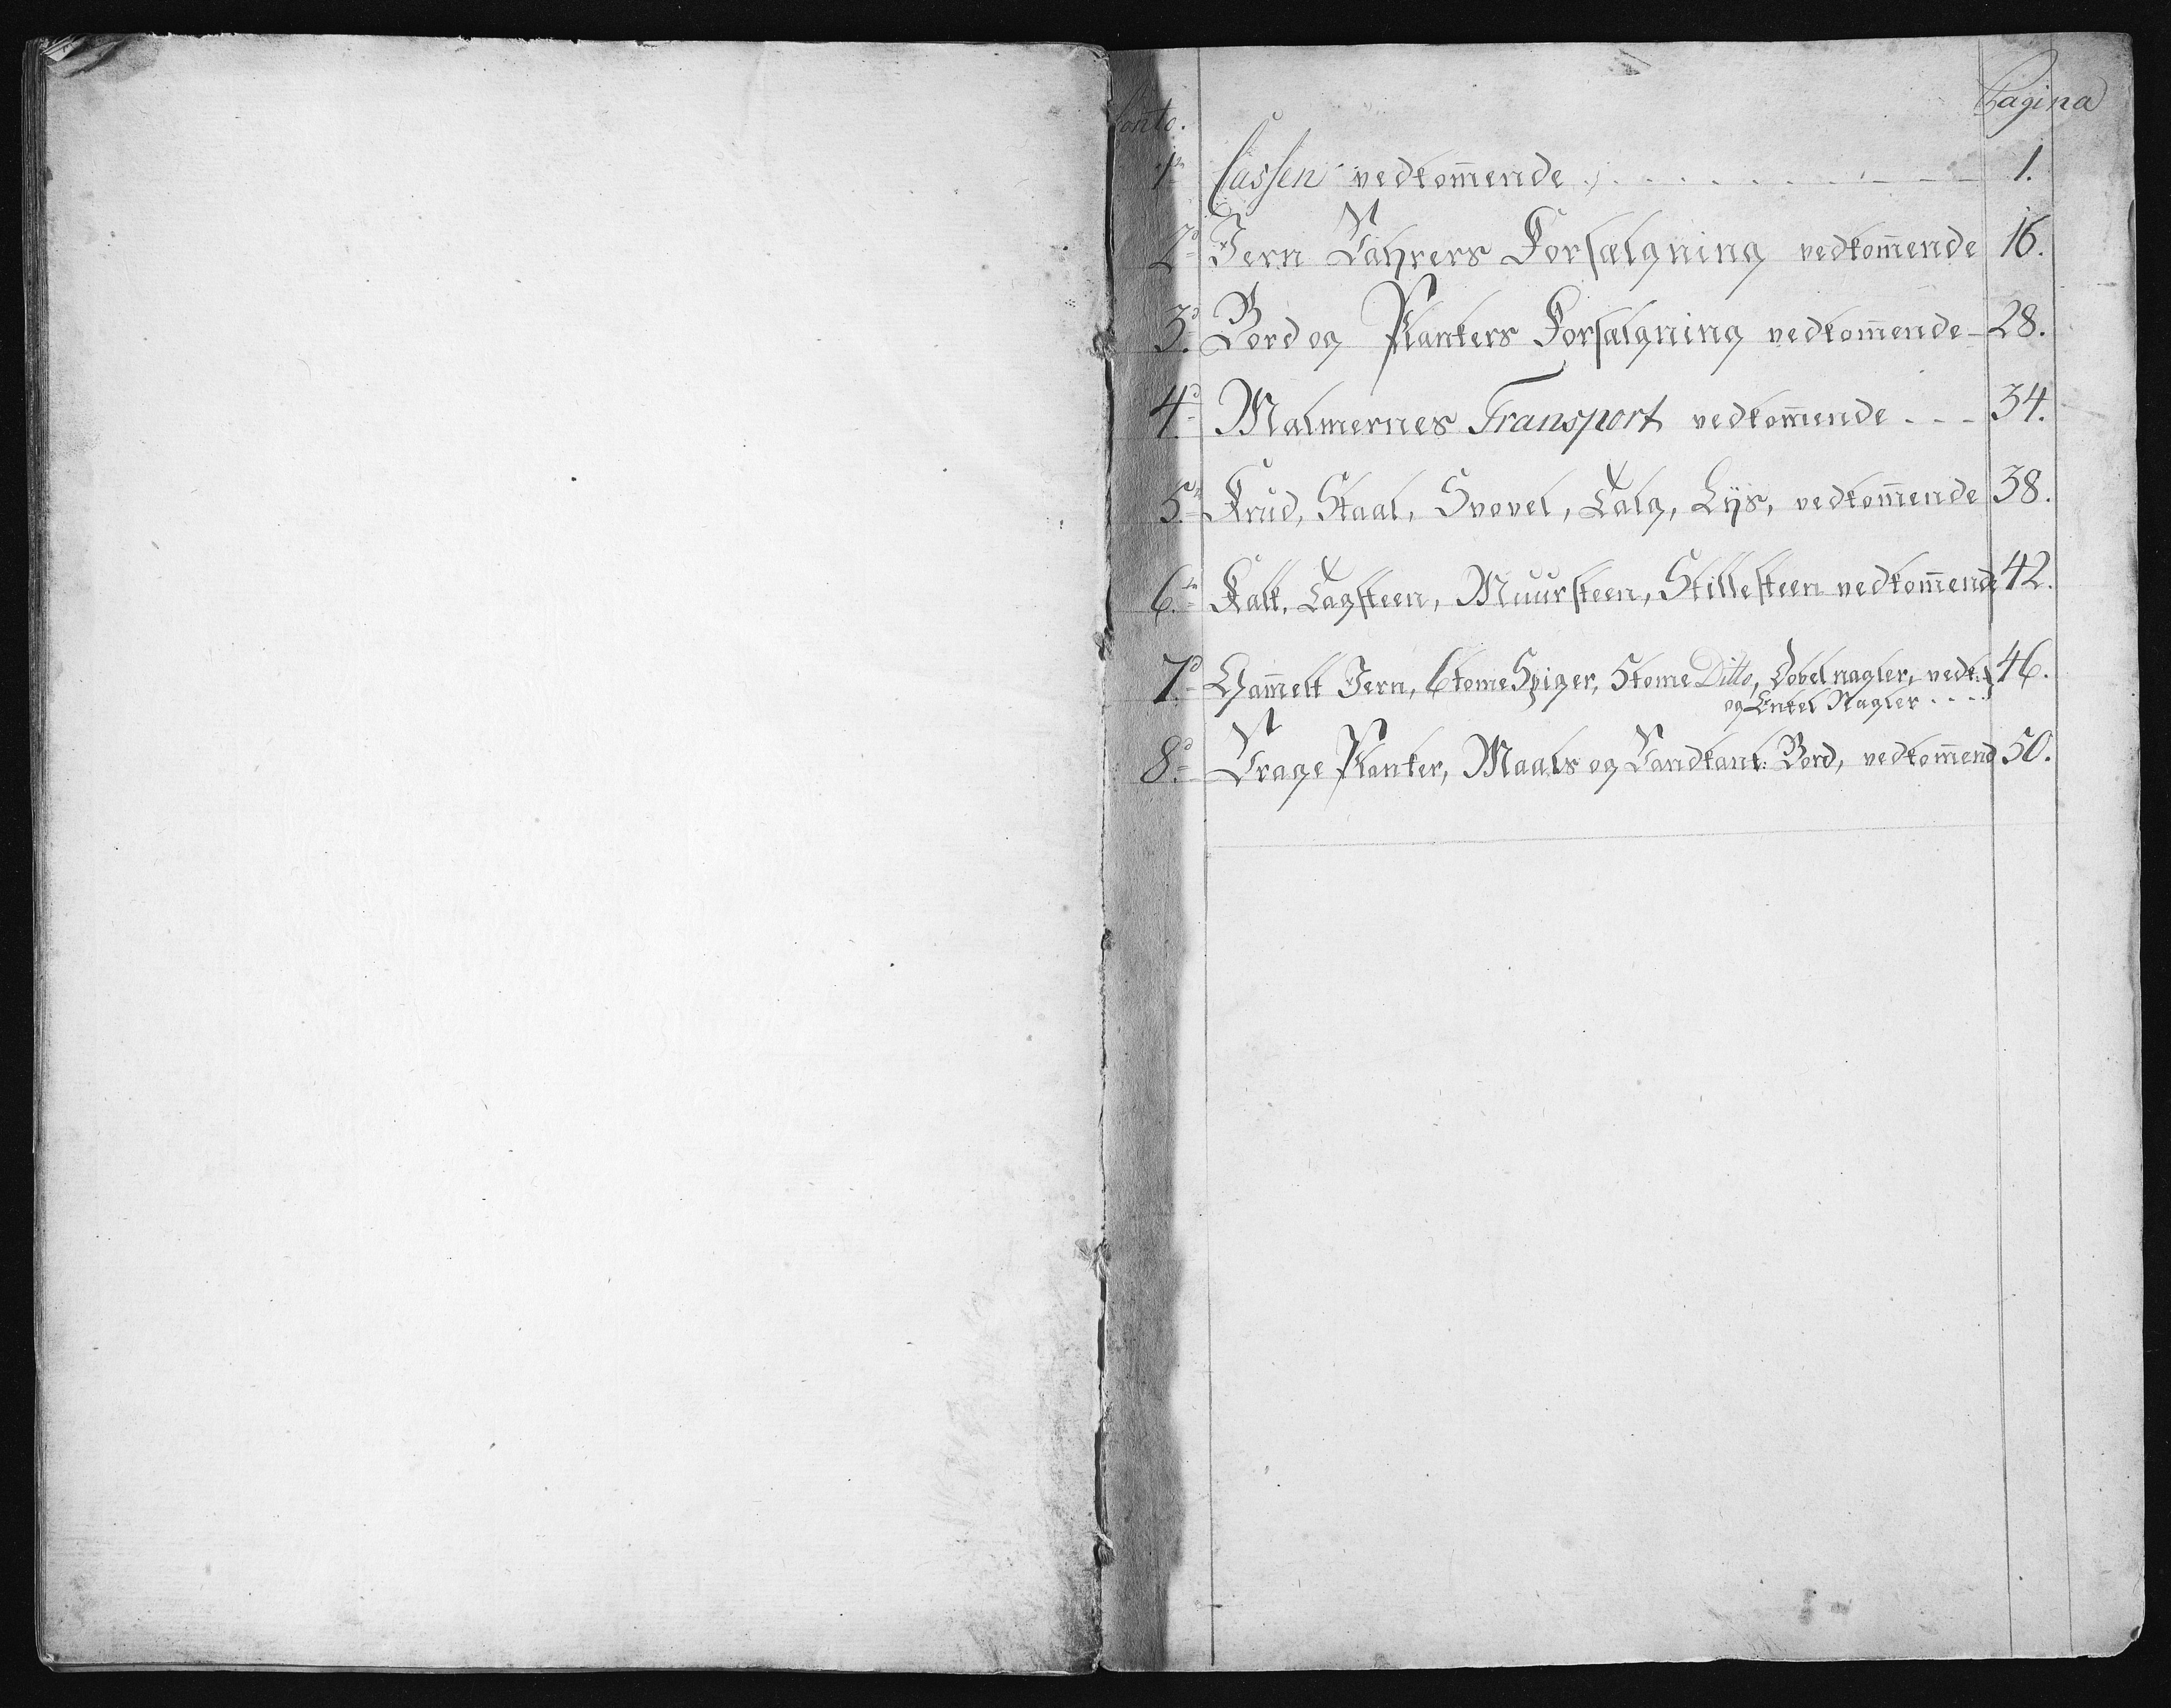 Conto. Pagina
1. Cassen vedkom̄ende . . . . . 1.
2. Jern Vahrers Forsælgning vedkom̄ende 16.
3. Bord og Plankers Forsælgning vedkom̄ende - 28.
4. Malmernes Transport vedkom̄ende . - - 34.
5. Krud, Staal, Svovel, Talg, Lys, vedkom̄ende 38.
6. Kalk, Tagsteen, Muursteen, Stillesteen vedkom̄ende 42.
7. Gam̄elt Jern, 6 tome Spiger, 5 tome Ditto, Dobel nagler, vedk: 46.
og Enkel Nagler . . . .
8. Vrage Planker, Maals og Vandkant: Bord, vedkom̄end 50.